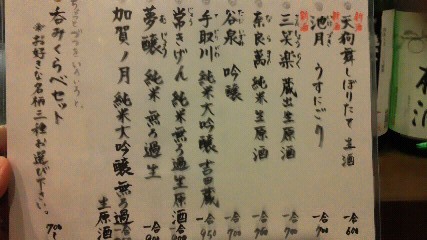 新酒 天狗舞 しぼりたて 生酒 一合 600
新酒 池月 うすにごり 一合 700
三笑楽 蔵出生原酒 一合 700
奈良萬 純米生原酒 一合 750
谷泉 吟醸 一合 700
手取川 純米大吟醸 吉田蔵 一合 950
常きげん 純米無ろ過生原酒 一合
夢醸 純米無ろ過生 一合 900
加賀ノ月 純米大吟醸 無ろ過生原酒 一合
ちょっとづついろいろと
呑みくらべセット
※お好きな名柄三種お選び下さい。 700